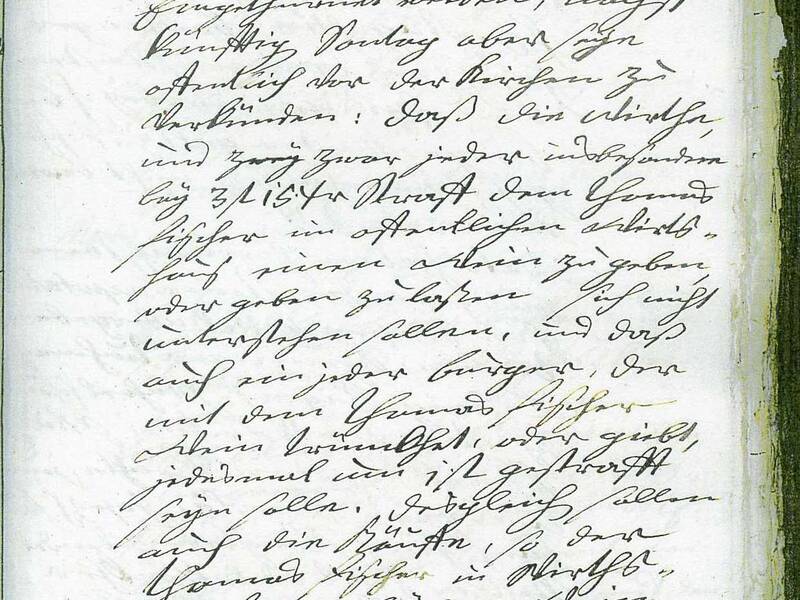 Eingethürnet werden, nächst
künfftig Sontag aber seye
offentlich vor der Kirchen zu
verkünden: daß die Wirthe,
und zwar jeder insbesondere
bey 3 fl 15 xr Straff dem Thomas
Fischer im offentlichen Wirts-
haus einen Wein zu geben,
oder geben zu laßen sich nicht
unterstehen sollen, und daß
auch ein jeder burger, der
mit dem Thomas Fischer
Wein trünckhet, oder giebt,
jedesmal um 1 fl gestrafft
seyn solle. desgleich sollen
auch die Käuffe, so der
Thomas Fischer in Wirths-